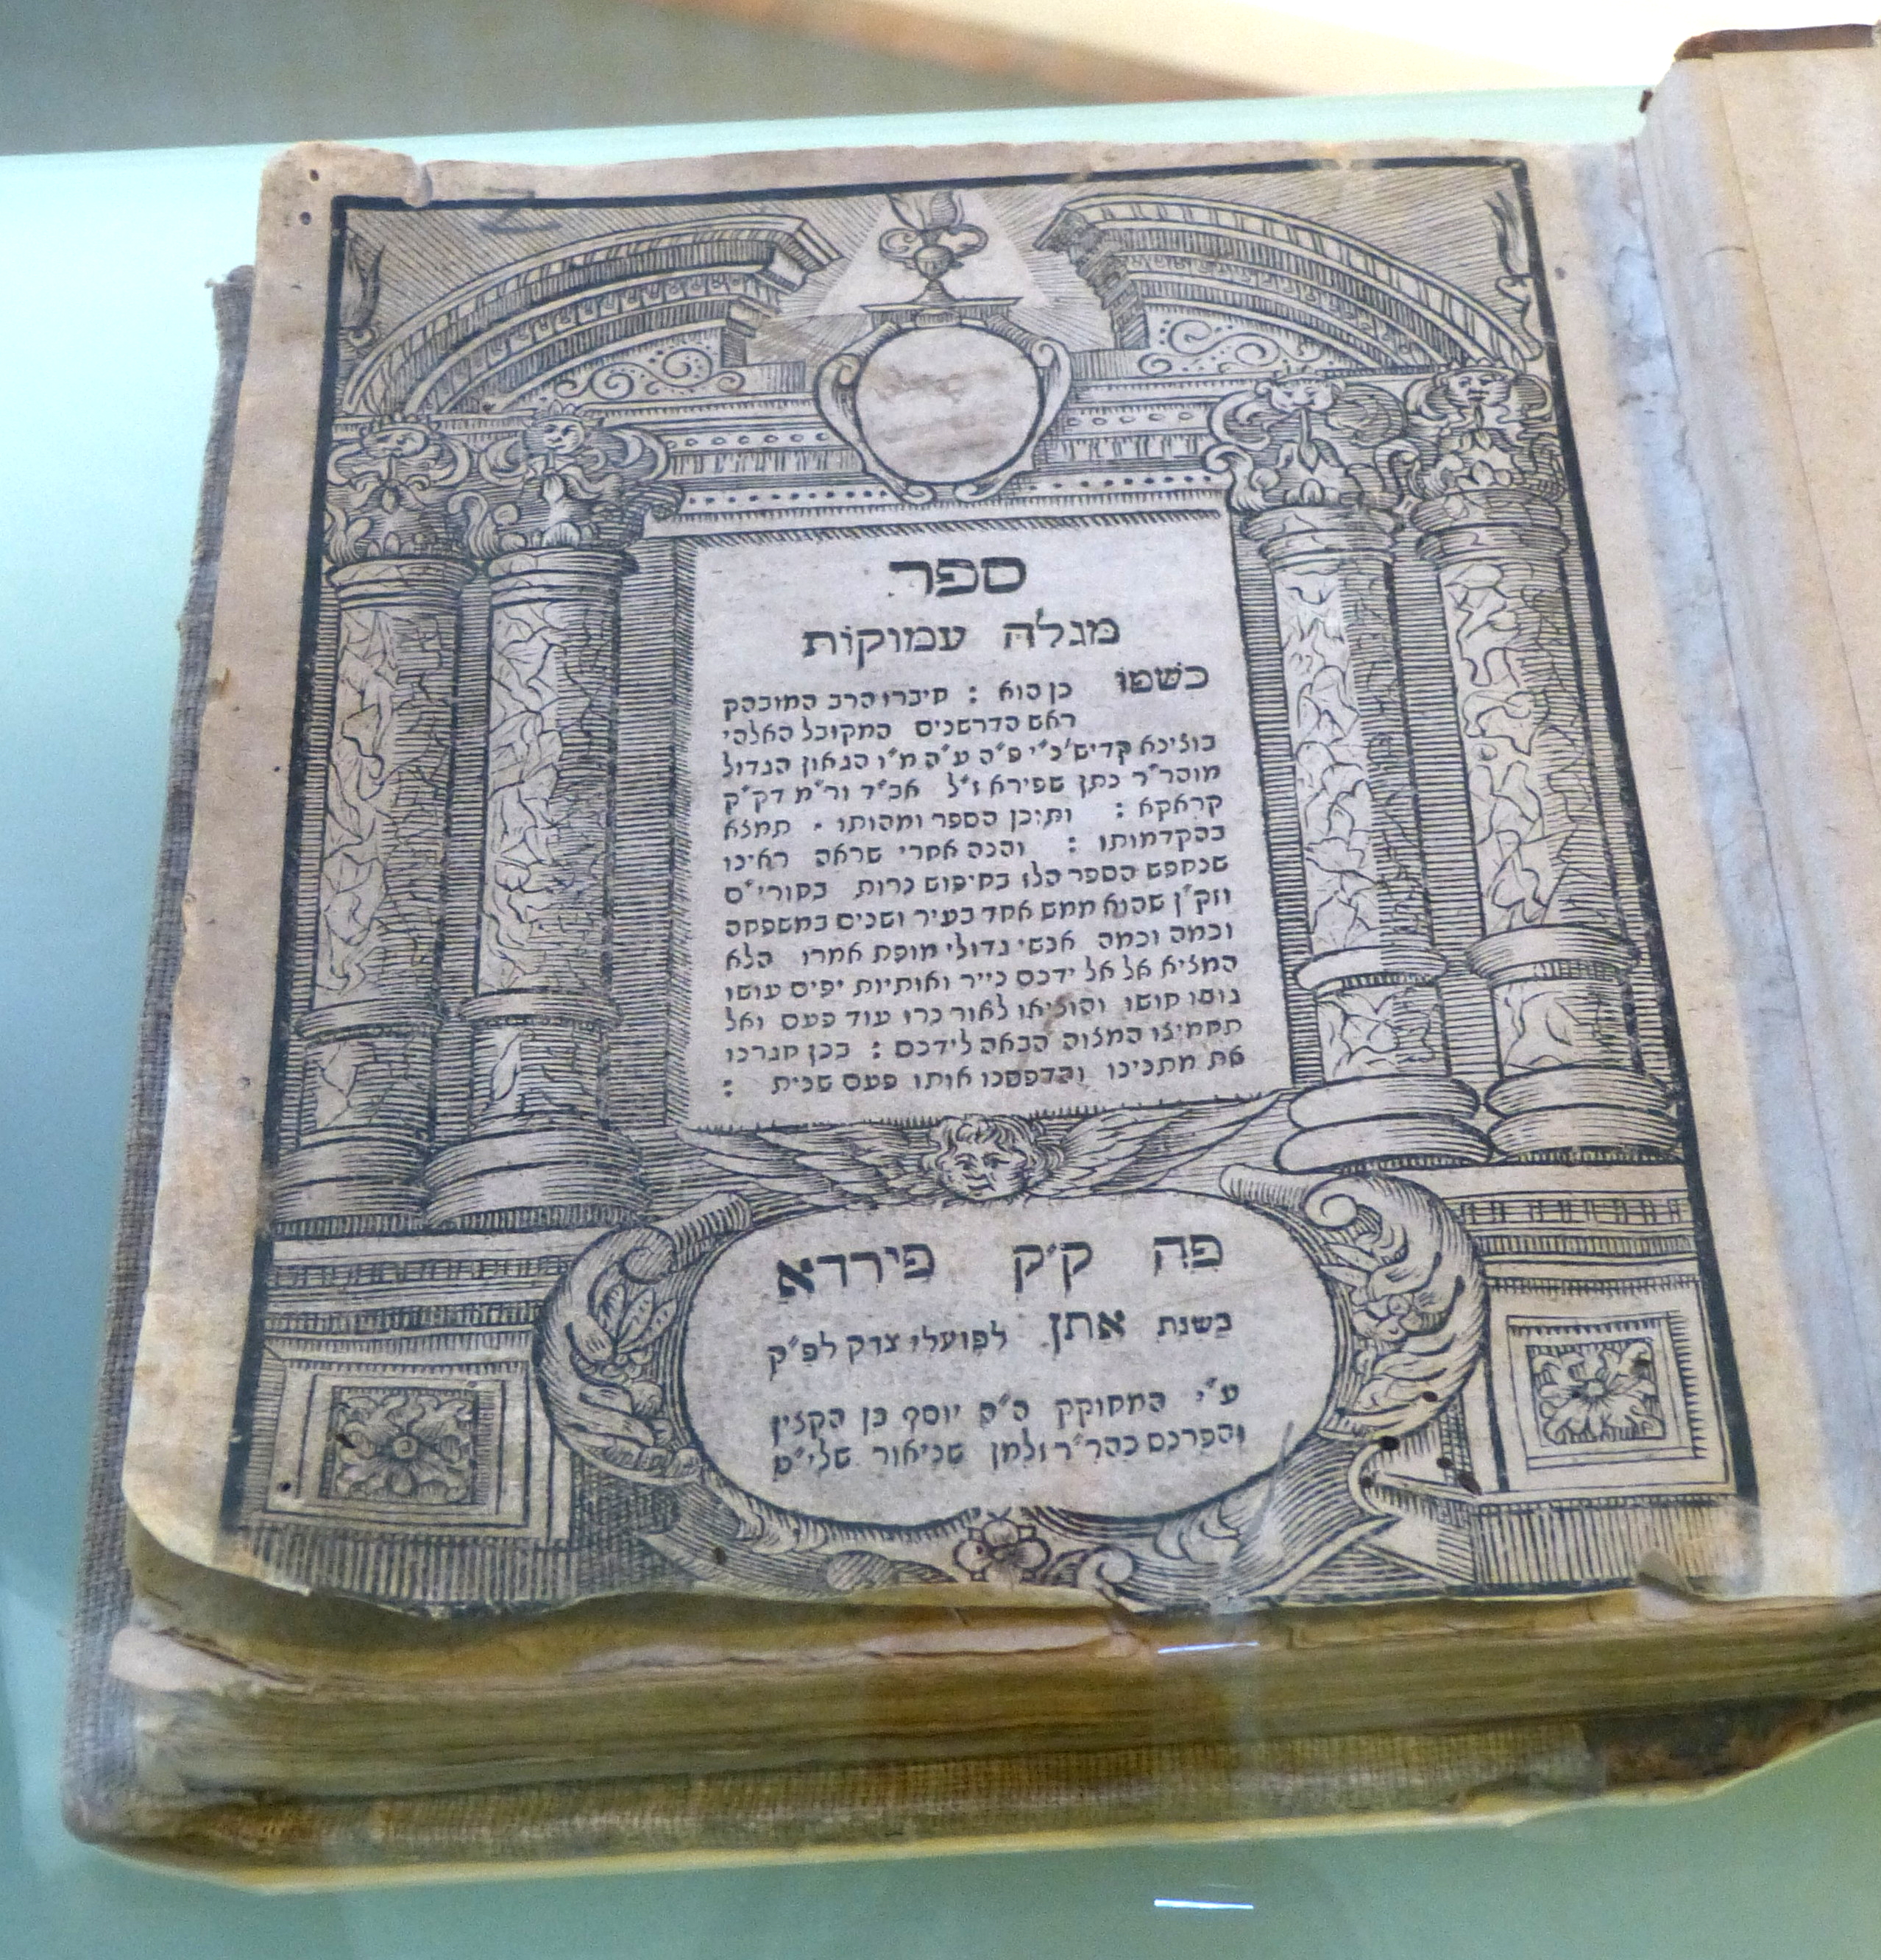 ספר
מגלה עמוקות
כשמו כן הוא : חיברו הרב המובהק
ראש הדרשנים המקובל האלהי
בוצינא קדיש' כ"י פ"ה ע"ה מ"ו הגאון הגדול
מוהר"ר נתן שפירא ז"ל אב"ד ור"מ דק"ק
קראקא : ותיכן הספר ומהותו . תמצא
בהקדמותו : והנה אחרי שראה ראינו
שנחפש הספר הלז בחיפוש נרות בחורי"ם
שהוא ממש אחד בעיר ושנים במשפחה
וכמה וכמה אנשי גדולי מופת אמרו הלא
המציא אל אל ידכם נייר ואותיות יפים עושו
חושו והוציאו לאור נרו עוד פעם ואל
תחמיצו המצוה הבאה לידכם : בכן חגרנו
את מתנינו והדפסנו אותו פעם שנית :
פה ק"ק פיררא
בשנת אתן לפועלי צדק לפ"ק
ע"י המחוקק ה"ה יוסף בן הקצין
והפרנס כהר"ר זלמן שניאור שלי"ט